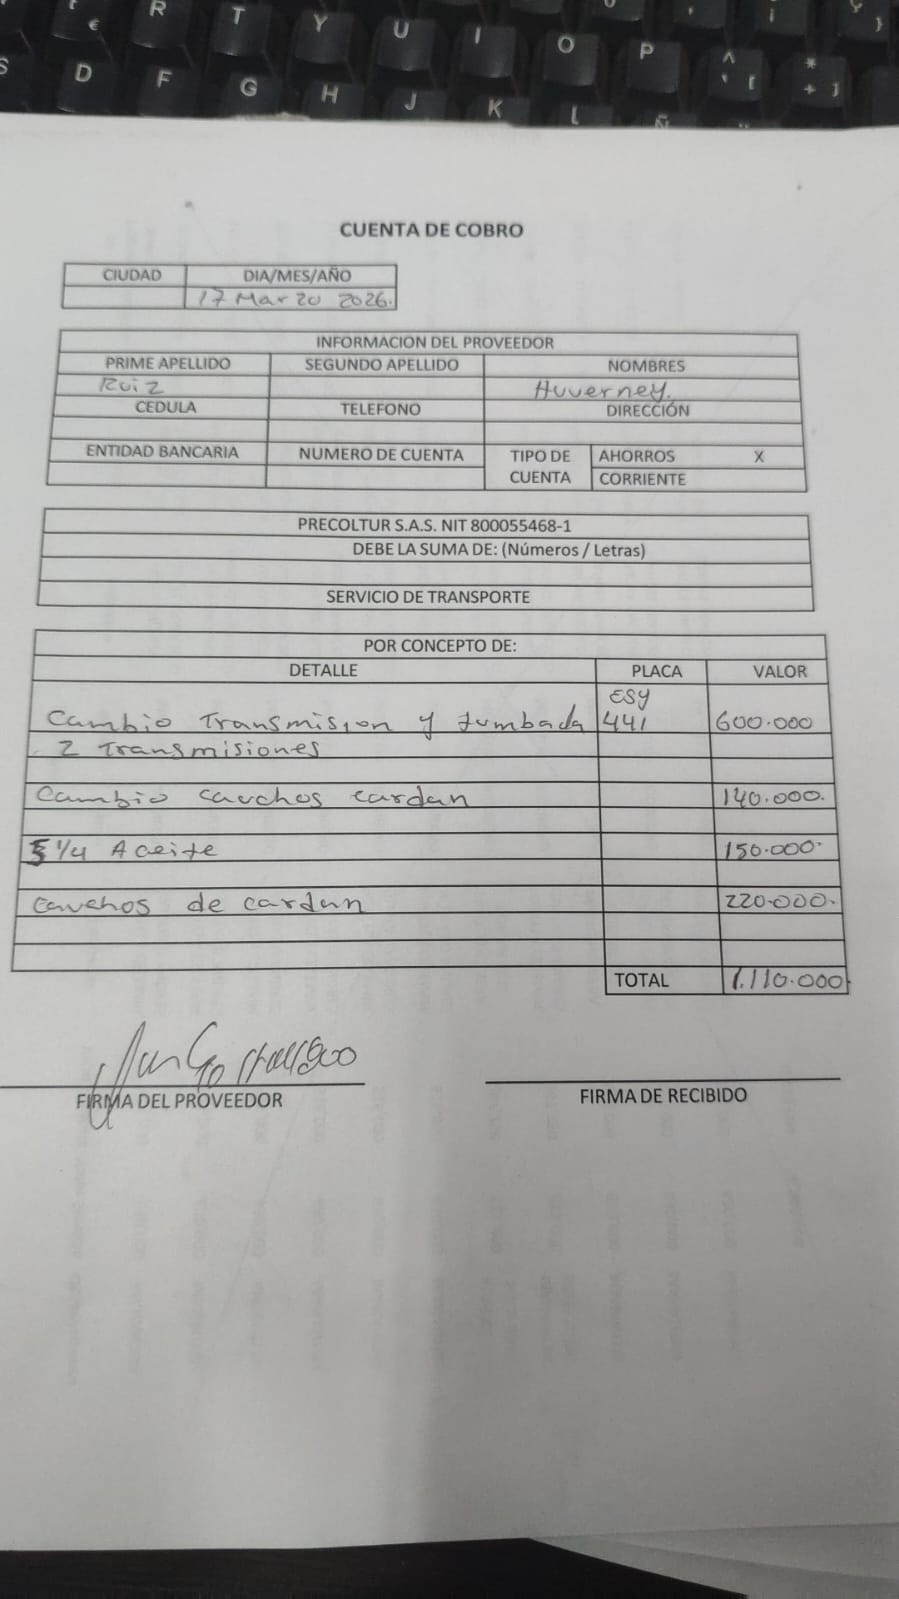 R T Y U I O P
S D F G H J K L Ñ
CUENTA DE COBRO
CIUDAD DIA/MES/AÑO
17 Marzo 2026.
INFORMACION DEL PROVEEDOR
PRIME APELLIDO SEGUNDO APELLIDO NOMBRES
Ruiz Huverney.
CEDULA TELEFONO DIRECCIÓN
ENTIDAD BANCARIA NUMERO DE CUENTA TIPO DE CUENTA AHORROS X
CORRIENTE
PRECOLTUR S.A.S. NIT 800055468-1
DEBE LA SUMA DE: (Números / Letras)
SERVICIO DE TRANSPORTE
POR CONCEPTO DE:
DETALLE PLACA VALOR
Cambio Transmision y tumbada ESY 441 600.000
2 Transmisiones
Cambio cauchos cardan 140.000.
5 1/4 Aceite 150.000.
cauchos de cardan 220.000.
TOTAL 1.110.000
FIRMA DEL PROVEEDOR FIRMA DE RECIBIDO